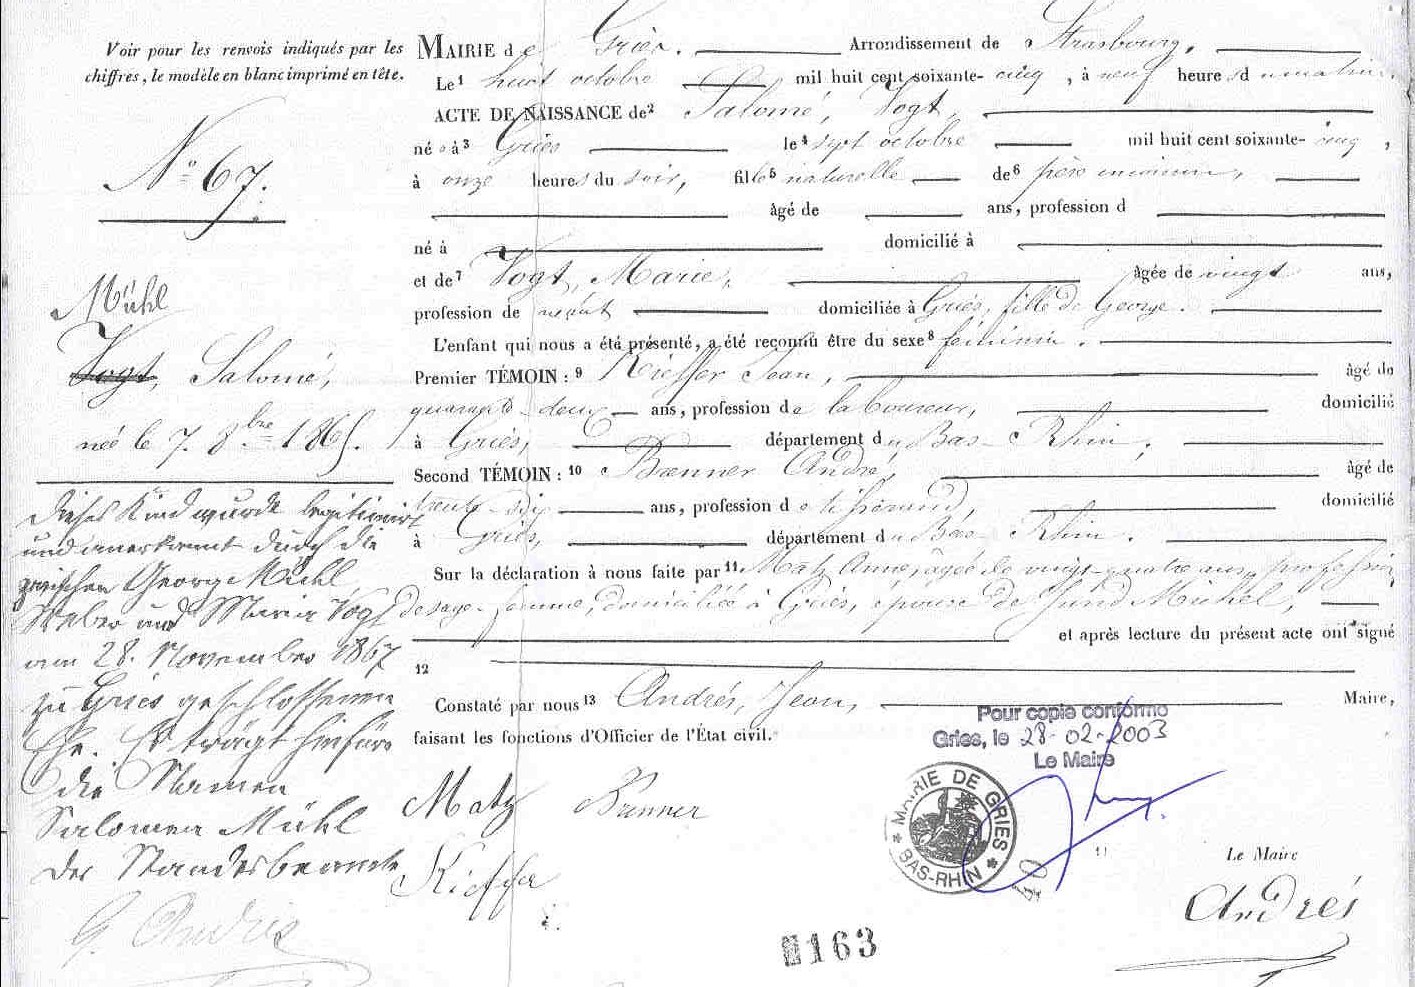 Voir pour les renvois indiqués par les
chiffres, le modèle en blanc imprimé en tête.
N° 67.
Mühl
Vogt, Salomé,
née le 7. 8bre 1865.
Dieses Kind wurde legitimirt
und anerkannt durch die
zwischen Georg Mühl,
Weber und Maria Vogt
am 28. November 1867
zu Gries geschlossenen
Ehe. Es trägt hinfüro
die Namen
Salomea Mühl
Der Standesbeamte
G. Andrés
MAIRIE de Gries. Arrondissement de Strasbourg.
Le 1 huit octobre mil huit cent soixante-cinq, à neuf heures du matin.
ACTE DE NAISSANCE de 2 Salomé, Vogt,
né à 3 Gries le 4 sept octobre mil huit cent soixante-cinq,
à onze heures du soir, fille 5 naturelle de 6 père inconnu,
âgé de ans, profession d
né à domicilié à
et de 7 Vogt, Marie, âgée de vingt ans,
profession de néant domiciliée à Gries, fille de George.
L'enfant qui nous a été présenté, a été reconnu être du sexe 8 féminin.
Premier TÉMOIN : 9 Kieffer Jean, âgé de
quarante-deux ans, profession de laboureur, domicilié
à Gries, département du Bas-Rhin,
Second TÉMOIN : 10 Brenner André, âgé de
trente-six ans, profession de tisserand, domicilié
à Gries, département du Bas-Rhin.
Sur la déclaration à nous faite par 11 Matz Anne, âgée de vingt-quatre ans, profession
de sage-femme, domiciliée à Gries, épouse de Mühel,
et après lecture du présent acte ont signé
12
Constaté par nous 13 Andrés, Jean, Maire,
faisant les fonctions d'Officier de l'État civil.
Pour copie conforme
Gries, le 28-02-2003
Le Maire
MAIRIE DE GRIES
* BAS-RHIN *
Matz Brenner
Kieffer
Le Maire
Andrés
40
163